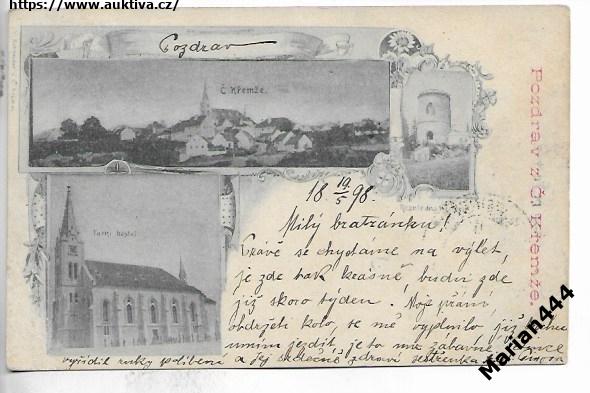 https://www.auktiva.cz/
Pozdrav
Č. Křemže.
Farní kostel
Rozhledna
Pozdrav z Č. Křemže.
18 19/5 98.
Milý bratránku!
Právě se chystáme na výlet,
je zde tak krásně, budu zde
již skoro týden. Moje přání,
obdržeti kolo, se mě vyplnilo již
umím jezdit, je to moc zábavné
vyřídit ruky políbení a jej srdečně zdraví sestřenka
Marian444